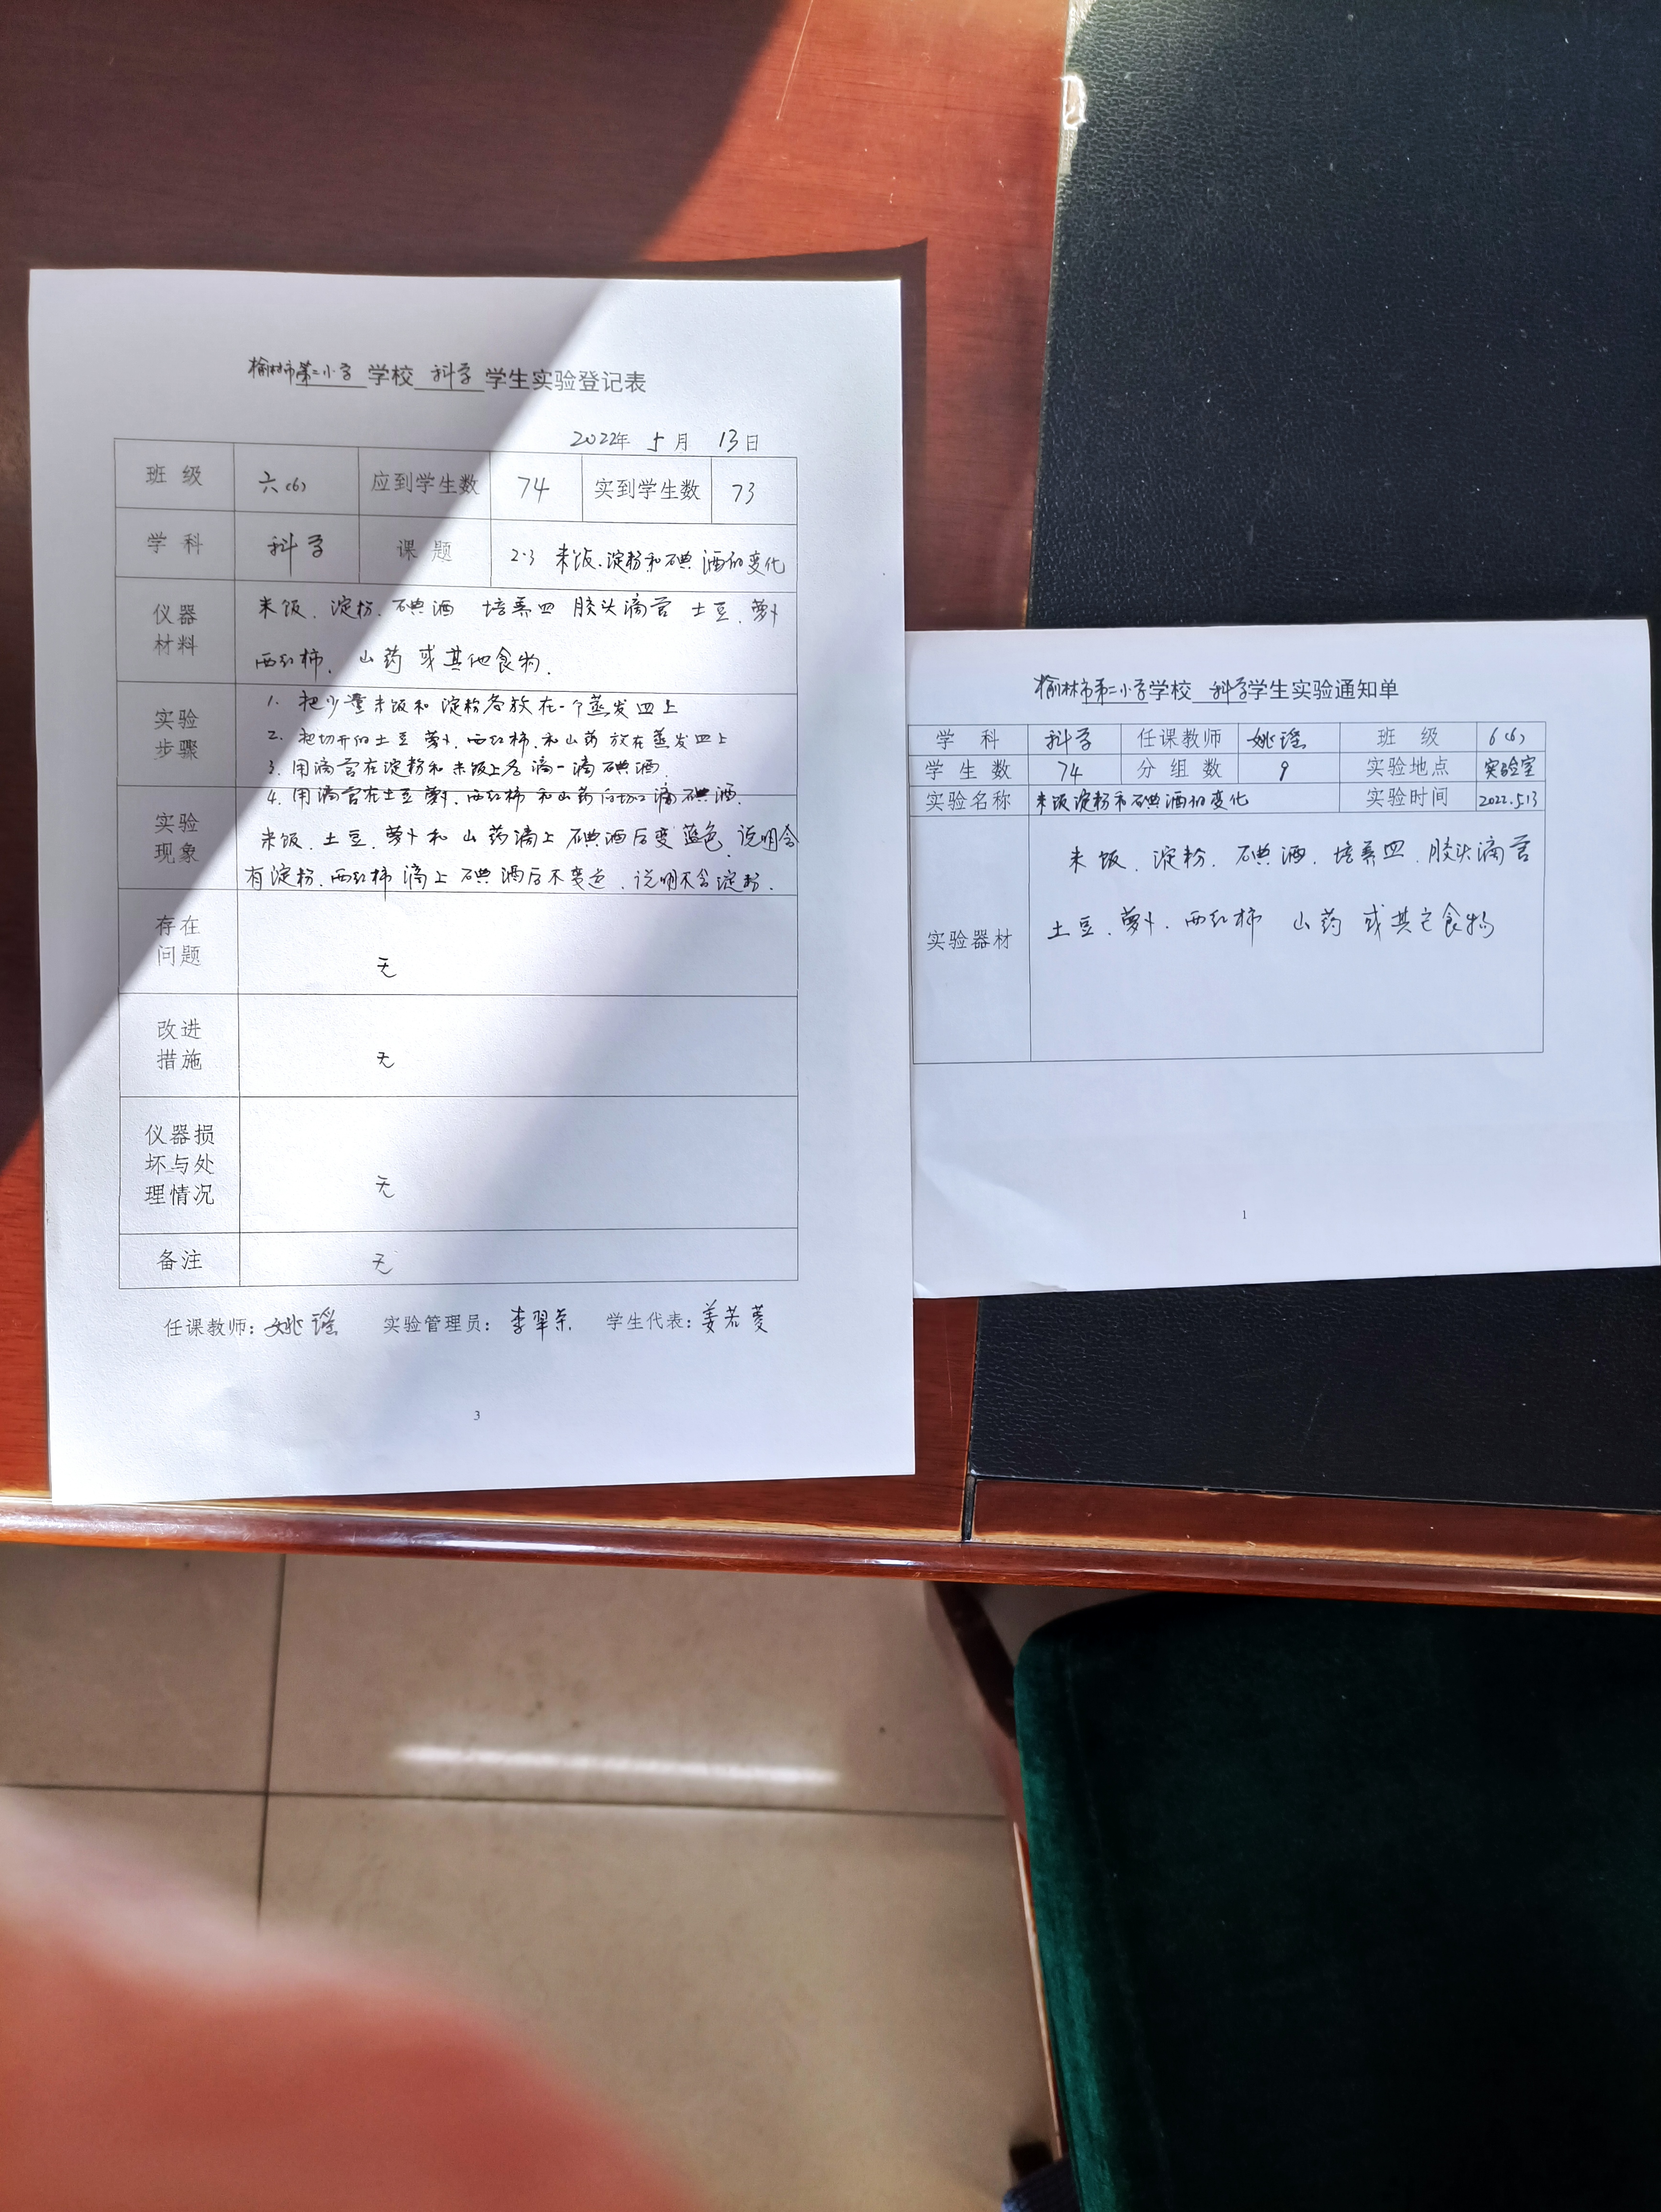 榆林市第二小学 学校 科学 学生实验登记表
2022年 5月 13日
班级 六(6) 应到学生数 74 实到学生数 73
学科 科学 课题 2.3 米饭、淀粉和碘酒的变化
仪器材料 米饭、淀粉、碘酒 培养皿 胶头滴管 土豆、萝卜
西红柿、山药 或其他食物.
实验步骤 1. 把少量米饭和淀粉各放在一个蒸发皿上
2. 把切开的土豆 萝卜、西红柿、和山药 放在蒸发皿上
3. 用滴管在淀粉和米饭上各滴一滴碘酒.
4. 用滴管在土豆 萝卜、西红柿 和山药 滴碘酒.
实验现象 米饭、土豆、萝卜和 山药滴上碘酒后变蓝色、说明含
有淀粉、西红柿滴上碘酒后不变色、说明不含淀粉.
存在问题 无
改进措施 无
仪器损坏与处理情况 无
备注 无
任课教师：姚瑶 实验管理员：李翠荣 学生代表：姜若菱
3
榆林市第二小学学校 科学学生实验通知单
学科 科学 任课教师 姚瑶 班级 6(6)
学生数 74 分组数 9 实验地点 实验室
实验名称 米饭淀粉和碘酒的变化 实验时间 2022.5.13
实验器材 米饭、淀粉、碘酒、培养皿、胶头滴管
土豆、萝卜、西红柿 山药 或其它食物
1